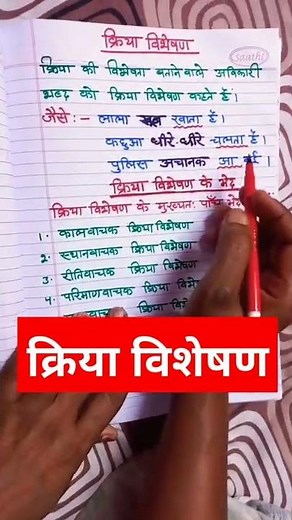 Saathi
क्रिया विशेषण
क्रिया की विशेषता बताने वाले अविकारी
शब्द को क्रिया विशेषण कहते हैं।
जैसे:- लाला खाता है।
कछुआ धीरे-धीरे चलता है।
पुलिस अचानक आ गई।
क्रिया विशेषण के भेद
क्रिया विशेषण के मुख्यतः पाँच
1. कालवाचक क्रियाविशेषण
2. स्थानवाचक क्रिया विशेषण
3. रीतिवाचक क्रिया विशेषण
4. परिमाणवाचक क्रिया
क्रिया
क्रिया विशेषण